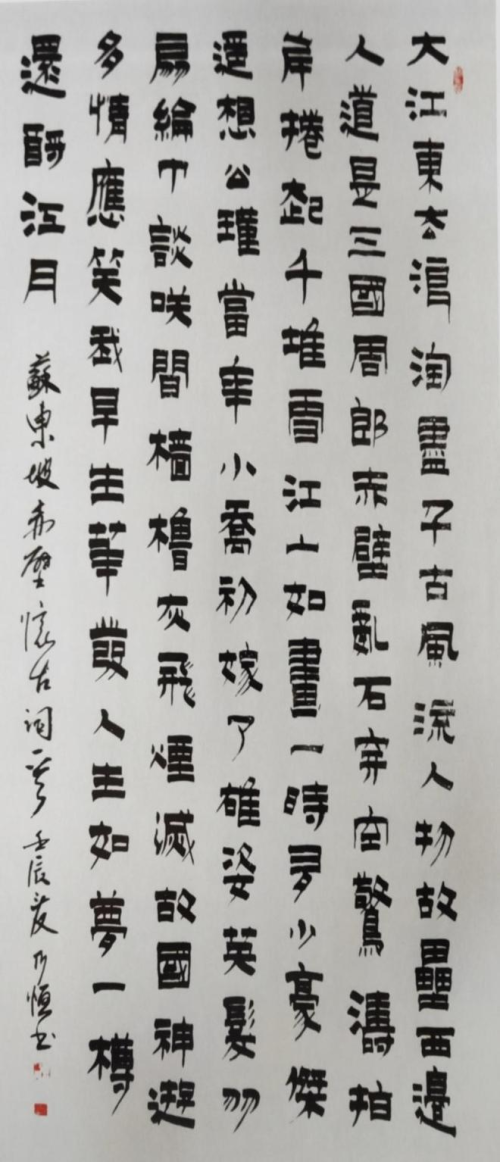 大江東去浪淘盡千古風流人物故壘西邊
人道是三國周郎赤壁亂石穿空驚濤拍
岸捲起千堆雪江山如畫一時多少豪傑
遙想公瑾當年小喬初嫁了雄姿英髮羽
扇綸巾談咲間檣櫓灰飛煙滅故國神遊
多情應笑我早生華發人生如夢一樽
還酹江月 蘇東坡赤壁懷古詞一首 壬辰夏乃恒書